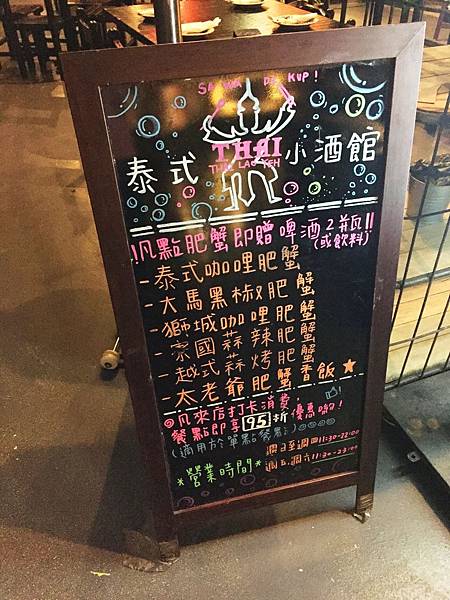 SAWA DI KUP!
THAI
THAI LAO YEH
泰式 小酒館
!!凡點肥蟹即贈啤酒2瓶!!
(或飲料)
-泰式咖哩肥蟹
-大馬黑椒肥蟹
-獅城咖哩肥蟹
-泰國蒜辣肥蟹
-越式蒜烤肥蟹
-太老爺肥蟹香飯★
◎凡來店打卡消費,
餐點即享95折優惠喲!
(適用於單點餐點)
*營業時間*
週日至週四11:30-22:00
週五.週六11:30-23:00